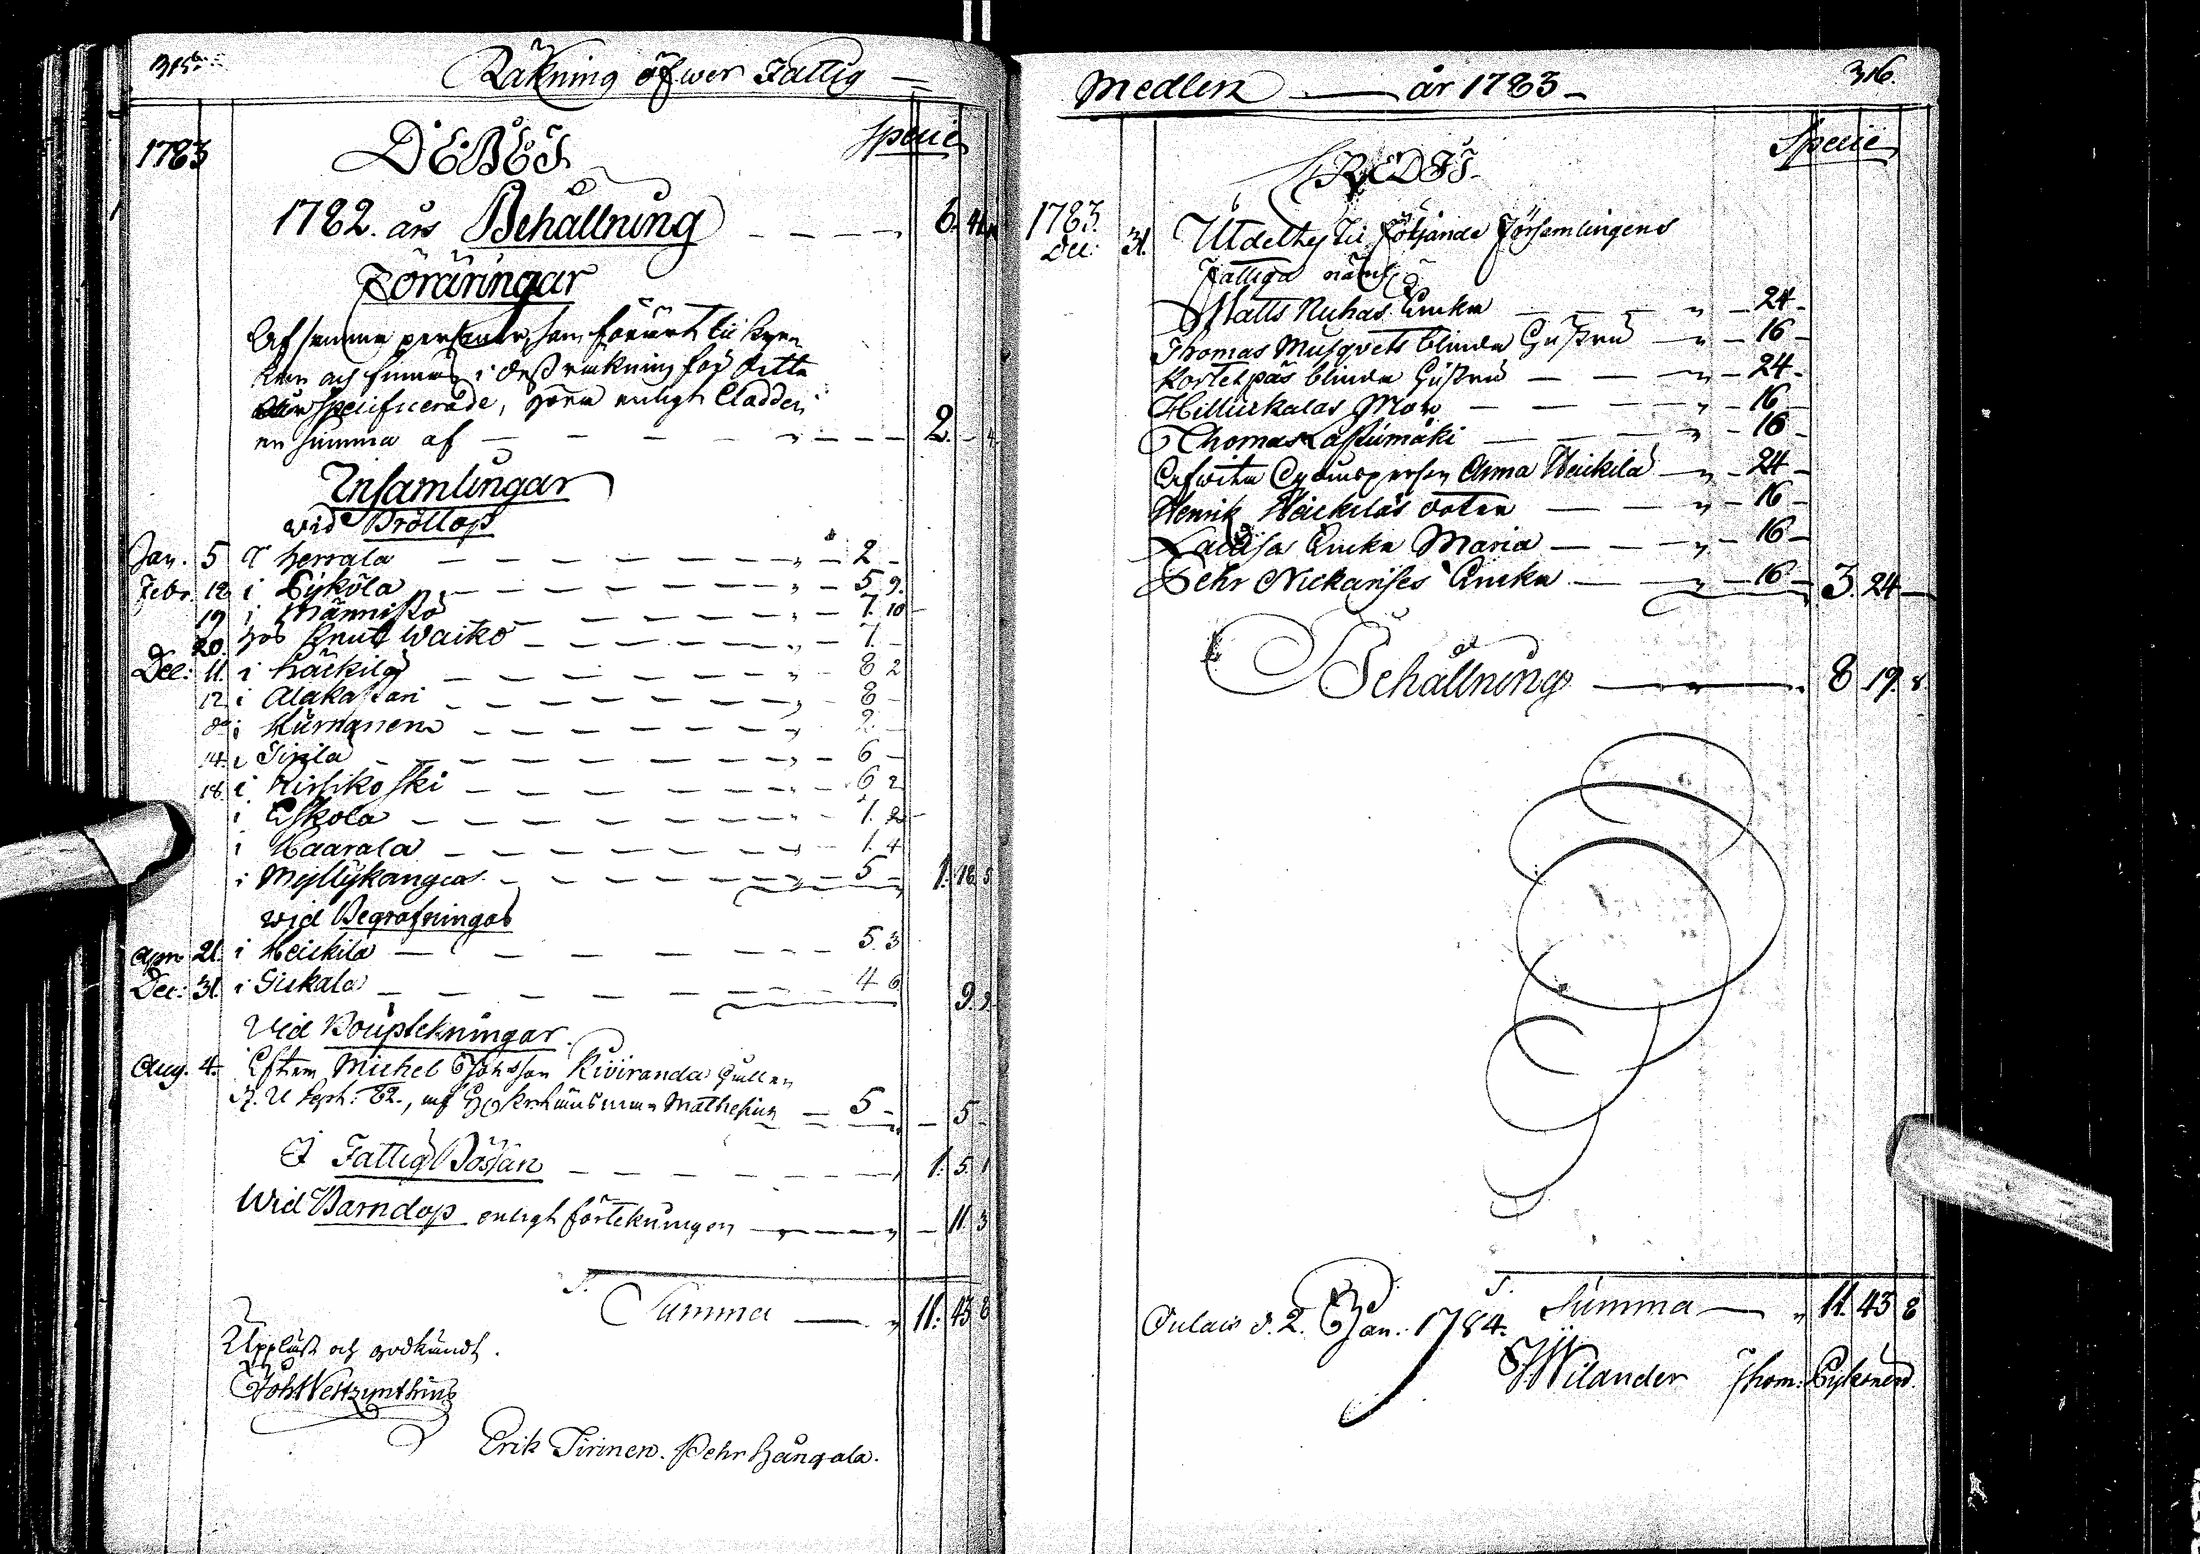 315.
Räkning öfwer Fattig
1783
DEBET
Specie
1782. års Behållning 6. 41
Föräringar
Af samma personer, som förärt til kyrkan och finnas i dess räkning för detta
specificerade, enligt Cladden
en summa af 2. 4.
Insamlingar
wid Bröllop
Jan. 5 I Herrala 2
Febr. 12 i Lyköla 5 9.
19 i Männistö 7. 10
20. hos Knut Waiko 7.
Dec: 11. i Häikilä 8 2
12 i Alakastari 8
do i Kurnanen 2.
14. i Tirila 6
18. i Kirsikoski 6 2
i Eskola 1. 2
i Haarala 1. 4
i Myllykangas 5 1. 18 5
wid Begrafningar
Apr. 21. i Heickilä 5. 3
Dec: 31. i Sickala 4 6 9. 9
Vid Bouptekningar.
Aug. 4. Efter Michel Johansson Kiviranda
Sept: 82., Mathesius 5 5
I Fattig Bössan 1. 5. 1
Wid Barndop enligt förtekningen 11. 3
S. Summa 11. 43 8
Uppläst och godkändt.
Joh Westzynthius
Erik Tirinen. Pehr Hangala.
Medlen år 1783
316.
CREDIT.
Specie
1783.
Dec: 31. Utdeltes til följande Församlingens
Fattiga näml.
Matts Ruhas Encka 24
Thomas Musqvets blinda Hustru 16
Kortetpäs blinda Hustru 24
Hillurkalas Mor 16
Thomas Lassumäki 16
Anna Heickilä 24
Henrik Heickiläs doter 16
Encka Maria 16
Pehr Nickarises Encka 16 3. 24
Behållning 8 19. 8
S. Summa 11. 43 8
d. 2. Jan. 1784.
Wilander Thom: Lykonen.